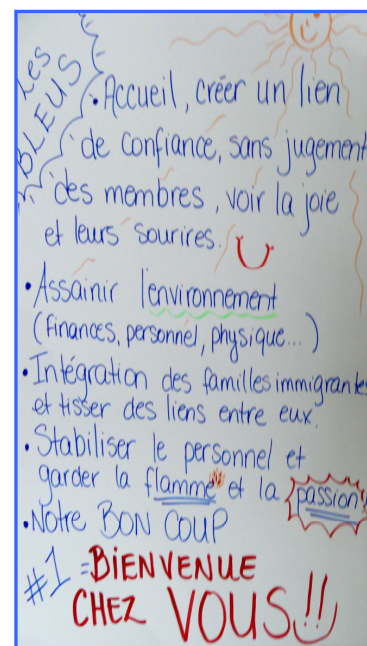 Les
BLEUS
• Accueil, créer un lien
de confiance, sans jugement
des membres, voir la joie
et leurs sourires.
• Assainir l'environnement
(finances, personnel, physique...)
• Intégration des familles immigrantes
et tisser des liens entre eux.
• Stabiliser le personnel et
garder la flamme et la passion
• Notre BON COUP
#1 = BIENVENUE
CHEZ VOUS!!